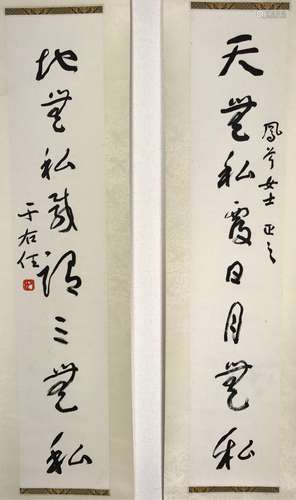 天無私覆日月無私
鳳女士 正之
地無私載謂三無私
于右任